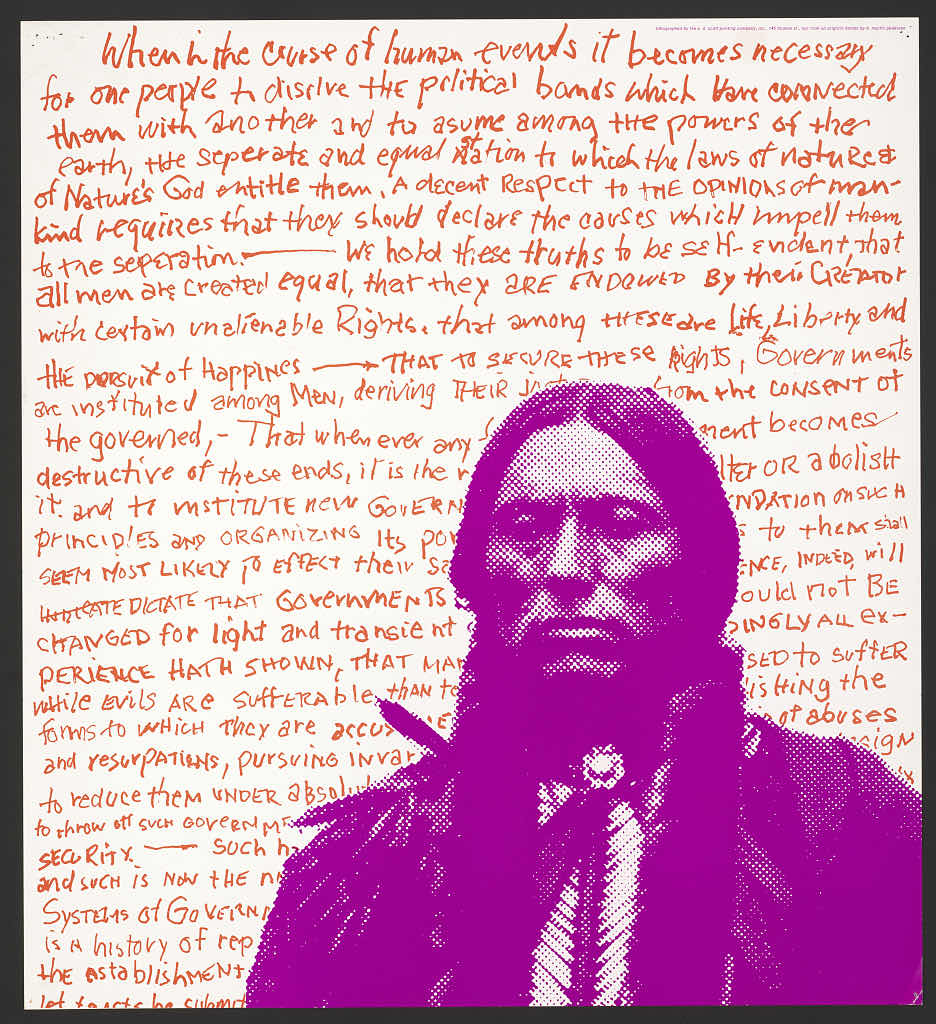 When in the course of human events it becomes necessary
for one people to disolve THE political bands which have connected
them with another and to asume among the powers of the
earth, the seperate and equal station to which the laws of nature &
of Nature's God entitle them, A decent Respect to THE OPINIONS of man-
kind requires that they should declare the causes which impell them
to the seperation. — We hold these truths to be self-evident, that
all men are created equal, that they ARE ENDOWED By their CREATOR
with certain unalienable Rights, that among THESE are Life, Liberty and
the pursuit of Happines → THAT TO SECURE THESE Rights, Governments
are instituted among Men, deriving THEIR just from the CONSENT OF
the governed, - That when ever any ment becomes
destructive of these ends, it is the lter OR abolish
it. and to INSTITUTE new GOVERN NDATION ON SUCH
principles AND ORGANIZING Its pow to them shall
SEEM MOST LIKELY TO EFFECT their Sa ENCE, INDEED, will
DICTATE THAT GOVERNMENTS ould not BE
CHANGED for light and transient DINGLY ALL ex-
PERIENCE HATH SHOWN, THAT MAN SED to SUFFER
while EVILS ARE SUFFERABLE, than to lishing the
forms to WHICH They are accus of abuses
and resurpations, pursuing invar sign
to reduce them UNDER absolu
to throw off such GOVERNME
SECURITY. — Such ha
and SUCH IS NOW THE n
SYSTEMS of GOVERNM
is A history of rep
the establishment
let facts be submit